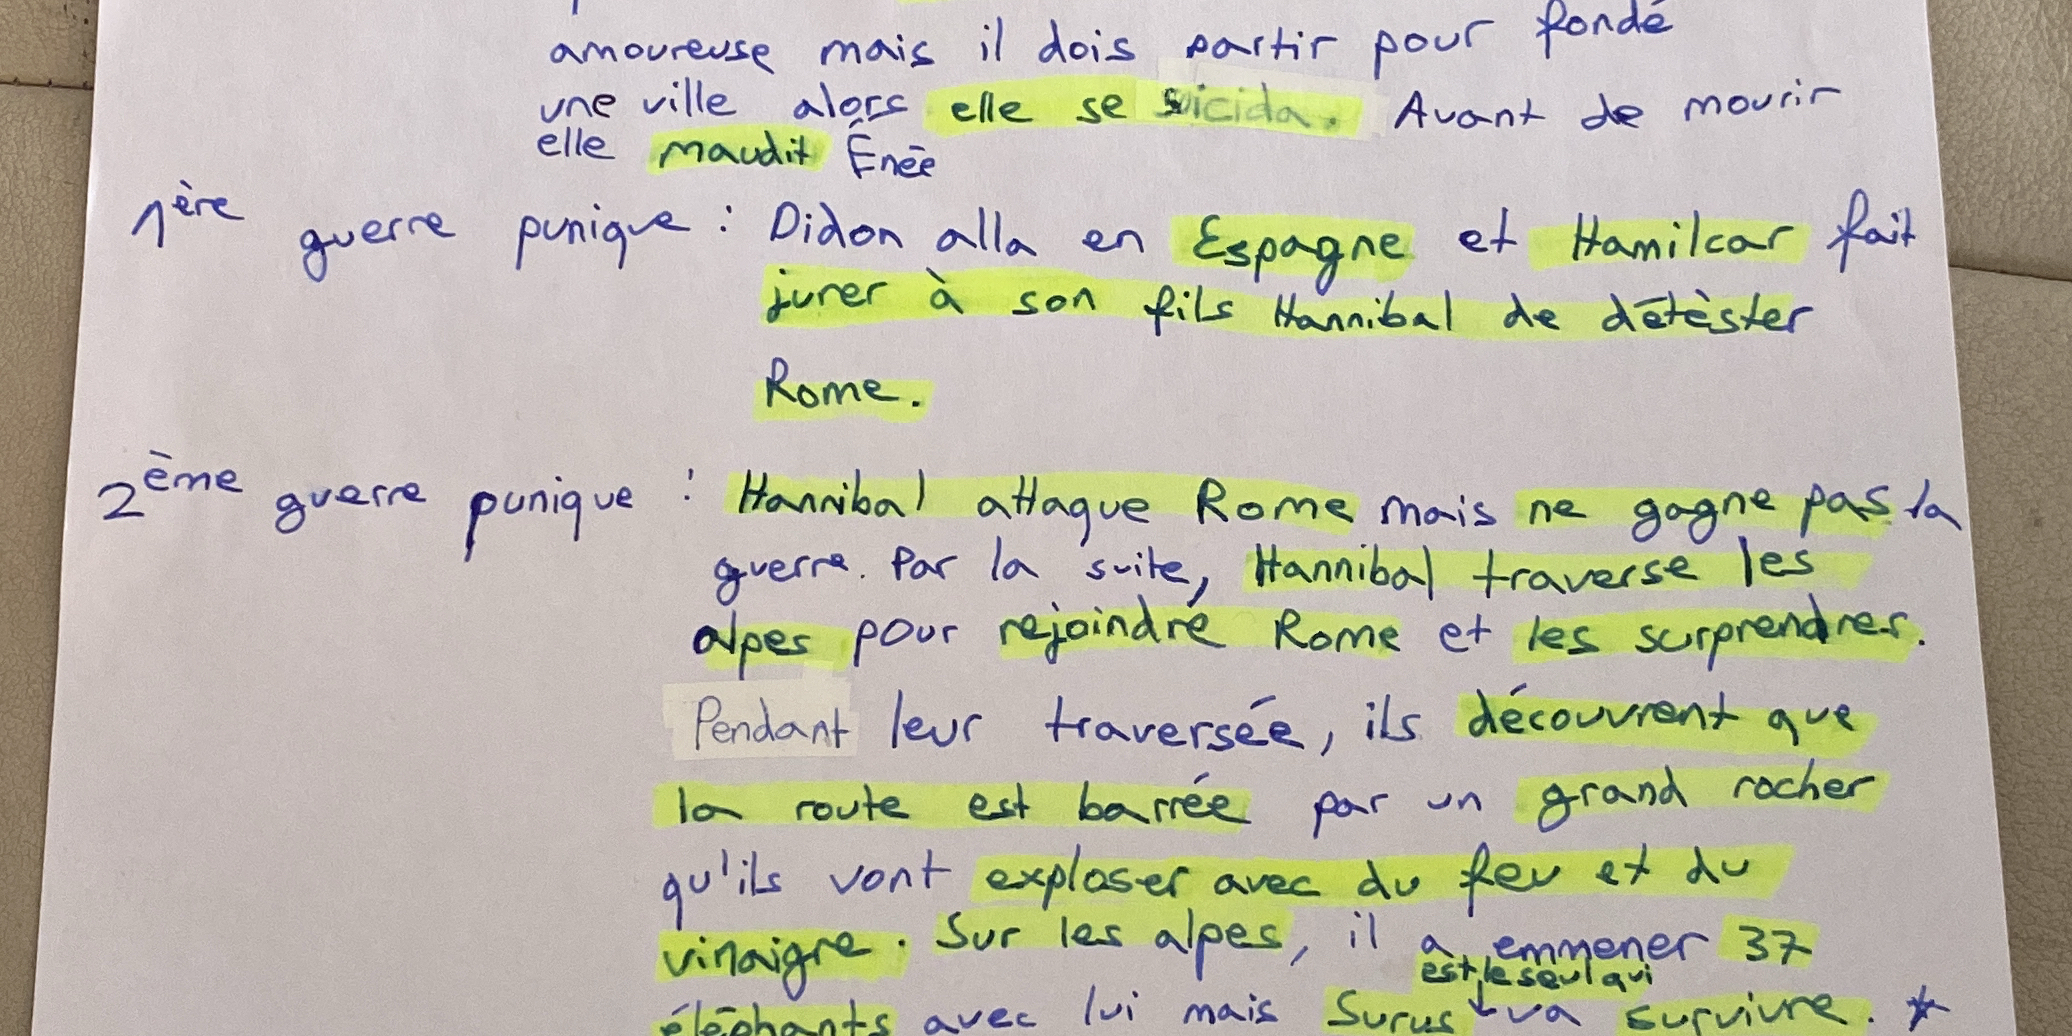 amoureuse mais il dois partir pour fondé
une ville alors elle se suicida. Avant de mourir
elle maudit Énée
1ère guerre punique : Didon alla en Espagne et Hamilcar fait
jurer à son fils Hannibal de détèster
Rome.
2ème guerre punique : Hannibal attaque Rome mais ne gagne pas la
guerre. Par la suite, Hannibal traverse les
alpes pour rejoindre Rome et les surprendres.
Pendant leur traversée, ils découvrent que
la route est barrée par un grand rocher
qu'ils vont exploser avec du feu et du
vinaigre. Sur les alpes, il a emmener 37
est le seul qui
éléphants avec lui mais Surus ↓ va survivre. *